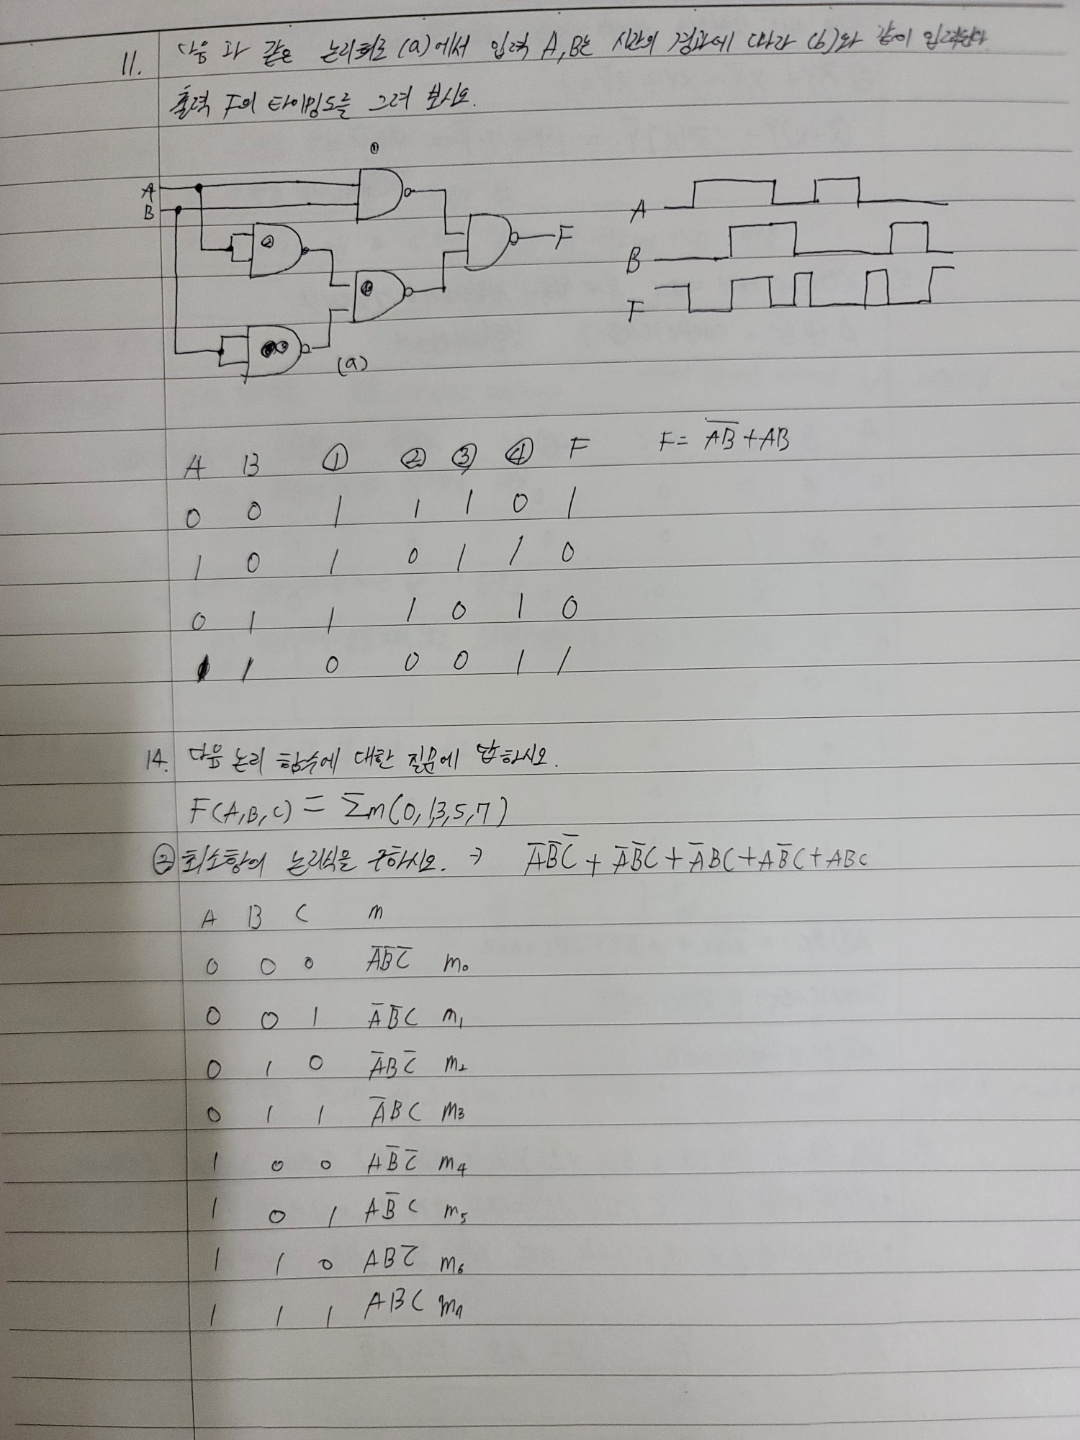 11. 다음 과 같은 논리회로 (a)에서 입력 A,B는 시간의 경과에 따라 (b)와 같이 입력된다
출력 F의 타이밍도를 그려 보시오.
①
A
B
②
F
(a)
A
B
F
A B ① ② ③ ④ F F = \overline{AB} + AB
0 0 1 1 1 0 1
1 0 1 0 1 1 0
0 1 1 1 0 1 0
1 1 0 0 0 1 1
14. 다음 논리 함수에 대한 질문에 답하시오.
F(A,B,C) = Σm(0,1,3,5,7)
② 최소항의 논리식을 구하시오. → A̅B̅C̅ + A̅B̅C + A̅BC + AB̅C + ABC
A B C m
0 0 0 A̅B̅C̅ m₀
0 0 1 A̅B̅C m₁
0 1 0 A̅BC̅ m₂
0 1 1 A̅BC m₃
1 0 0 AB̅C̅ m₄
1 0 1 AB̅C m₅
1 1 0 ABC̅ m₆
1 1 1 ABC m₇